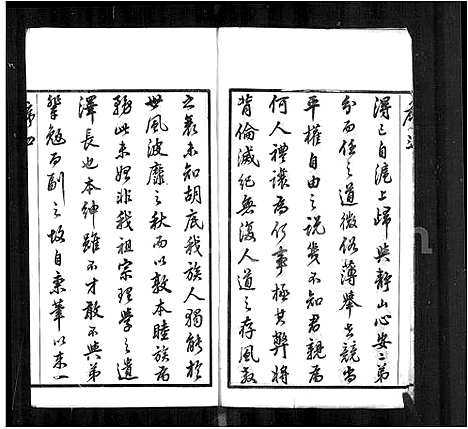 序三
得之自滬上歸與靜山心安二弟
分而任之道微俗薄舉世競尚
平權自由之說幾不知君親為
何人禮讓為何事極其弊將
背倫滅紀無復人道之存風教
之衰未知胡底我族人獨能於
世風波靡之秋而以敦本睦族為
務此未始非我祖宗理學之遺
澤長也本紳雖不才敢不與弟
輩勉而副之故自秉筆以來一
序四